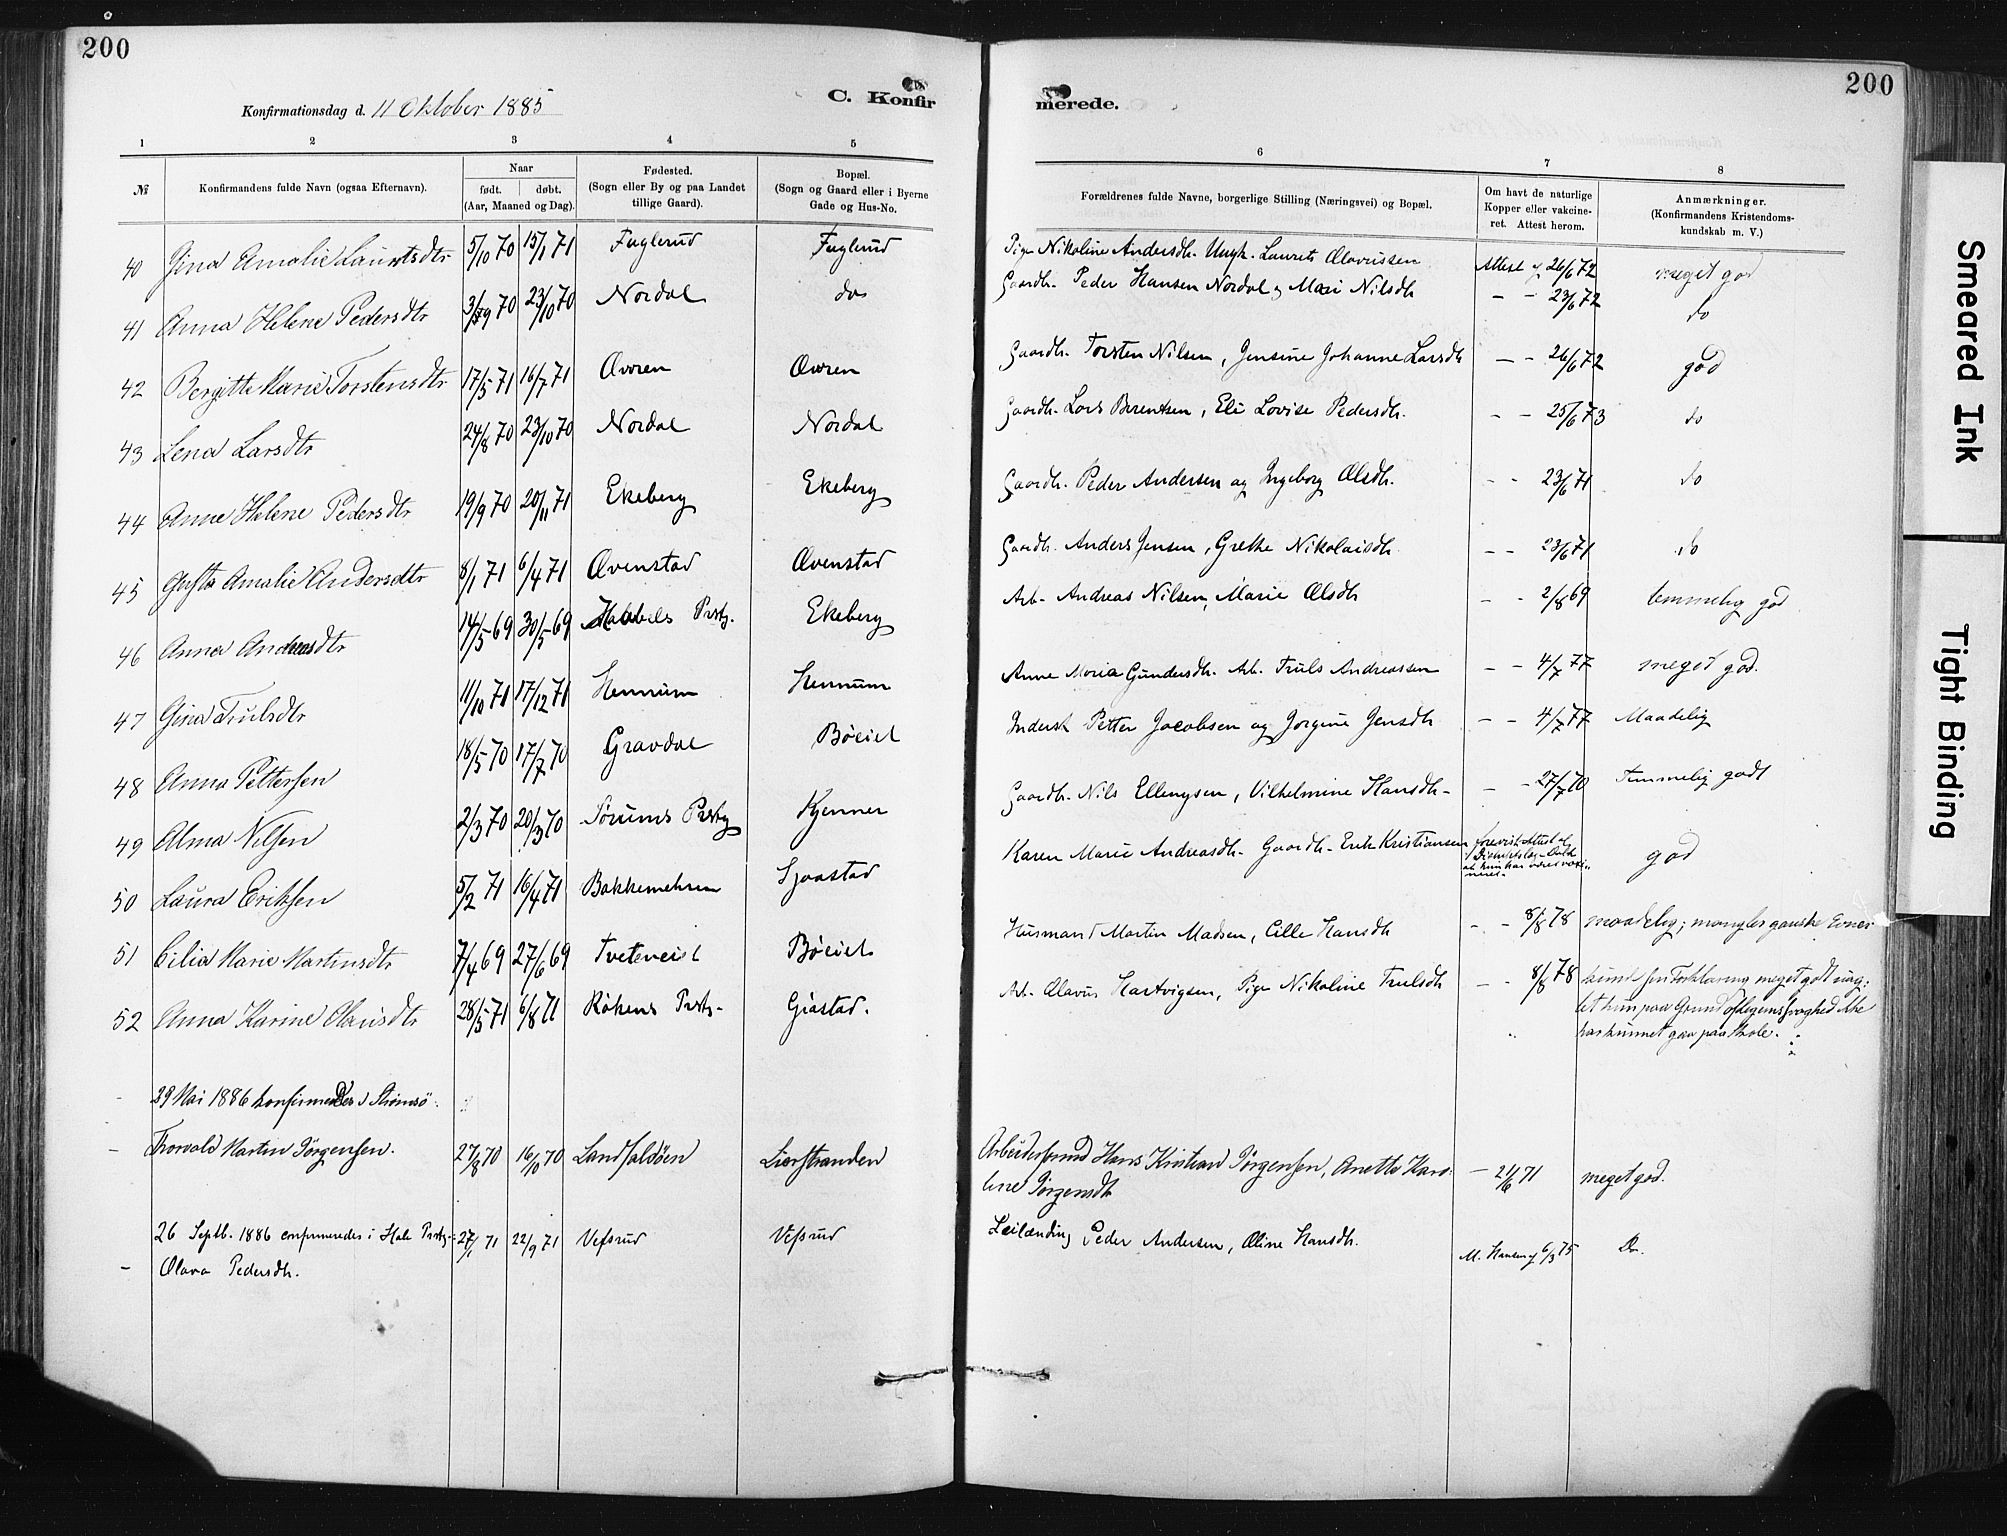 200
200
Konfirmationsdag d. 11 Oktober 1885
C. Konfir
merede.
1 2 3 4 5
6 7 8
№
Konfirmandens fulde Navn (ogsaa Efternavn).
Naar
født. døbt.
(Aar, Maaned og Dag).
Fødested.
(Sogn eller By og paa Landet
tillige Gaard).
Bopæl.
(Sogn og Gaard eller i Byerne
Gade og Hus-No.
Forældrenes fulde Navne, borgerlige Stilling (Næringsvei) og Bopæl.
Om havt de naturlige
Kopper eller vakcine-
ret. Attest herom.
Anmærkninger.
(Konfirmandens Kristendoms-
kundskab m. V.)
40 Gina Amalie Lauritsdtr 5/10 70 15/1 71 Fuglerud Fuglerud Pige Nikoline Andersdtr. Ungk. Laurits Olavussen Attest af 26/6 72 meget god
41 Anna Helene Pedersdtr 3/9 70 23/10 70 Nordal do Gaardb. Peder Hansen Nordal og Mari Nilsdtr - - 23/6 72 do
42 Bergitte Marie Torstensdtr 17/5 71 16/7 71 Øvren Øvren Gaardb. Torsten Nilsen, Jensine Johanne Larsdtr - - 26/6 72 god
43 Lena Larsdtr 24/8 70 23/10 70 Nordal Nordal Gaardb. Lars Berentsen, Eli Lovise Pedersdtr. - - 25/6 73 do
44 Anne Helene Pedersdtr 19/9 70 20/11 71 Ekeberg Ekeberg Gaardb. Peder Andersen og Ingeborg Olsdtr. - - 23/6 71 do
45 Amalie Andersdtr 8/1 71 6/4 71 Øvenstad Øvenstad Gaardb. Anders Jensen, Grethe Nikolaisdtr. - - 23/6 71 do
46 Anna Andreasdtr 14/5 69 30/5 69 Prstg. Ekeberg Arb. Andreas Nilsen, Marie Olsdtr - - 2/8 69 temmelig god
47 Gina Trulsdtr 11/10 71 17/12 71 Hennum Hennum Anne Maria Gundersdtr. Arb. Truls Andreassen - - 4/7 77 meget god.
48 Anna Pettersen 18/5 70 17/7 70 Gravdal Bøeiet Inderst Petter Jacobsen og Jorgine Jensdtr - - 4/7 77 Maadelig
49 Alma Nilsen 2/3 70 20/3 70 Sørums Prstg Kjenner Gaardb. Nils Ellengsen, Vilhelmine Hansdtr - - 27/7 70 Temmelig godt
50 Laura Eriksen 5/2 71 16/4 71 Bakkemehren Sjaastad Karen Marie Andreasdtr. Gaardb. Erik Kristiansen forevist Attest af
at hun har været vacci-
neret. god
51 Cilia Marie Martinsdtr 7/4 69 27/6 69 Tveteneiet Bøeiet Husmand Martin Madsen, Cille Hansdtr - - 8/8 78 maadelig; mangler ganske Evner
52 Anna Karine Olausdtr 28/5 71 6/8 71 Røkens Prstg. Gjøstad. Arb. Olavus Hartvigsen, Pige Nikoline Trulsdtr - - 8/8 78 kunde sin Forklaring meget godt uag-
tet hun paa Grund af Legemssvaghed ikke
har kunnet gaa paa Skole.
29 Mai 1886 konfirmeredes i Strømsø.
- Thorvald Martin Jörgensen. 27/8 70 16/10 70 Landfaldöen Lierstranden Arbeidsformd Hans Kristian Jörgensen, Anette Karo-
line Jörgensdtr - 21/6 71 meget god.
26 Septb. 1886 confirmeredes i Hole Prstg. 27/1 71 22/9 71 Vefsrud Vefsrud Leilænding Peder Andersen, Oline Hansdtr. M. Hansen af 6/3 75 Do.
- Olava Pedersdtr.
Smeared Ink
Tight Binding